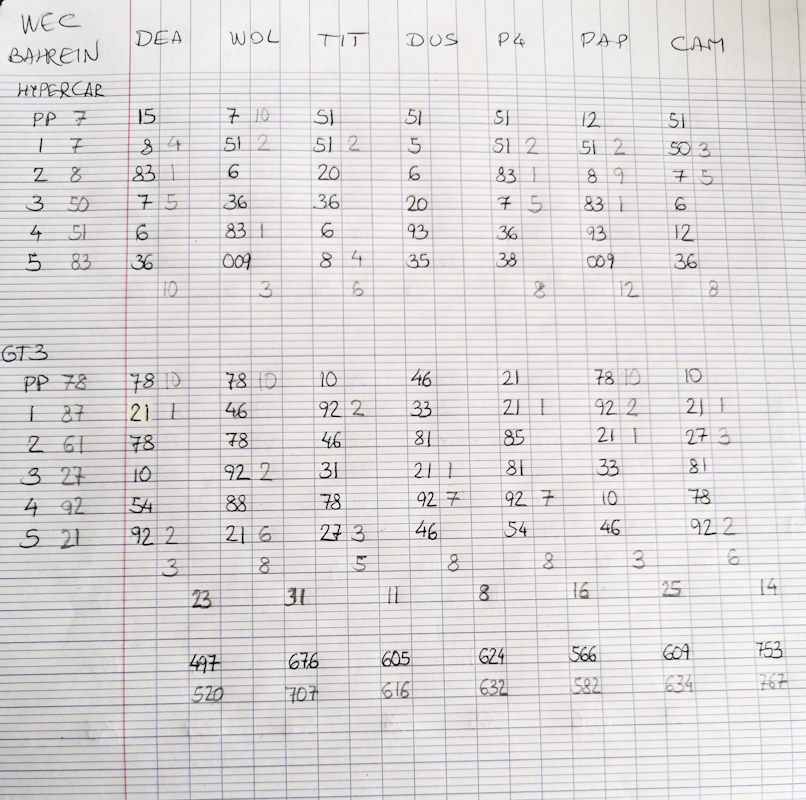 WEC
BAHREIN DEA WOL TIT DUS P4 PAP CAM
HYPERCAR
PP 7 15 7 10 51 51 51 12 51
1 7 8 4 51 2 51 2 5 51 2 51 2 50 3
2 8 83 1 6 20 6 83 1 8 9 7 5
3 50 7 5 36 36 20 7 5 83 1 6
4 51 6 83 1 6 93 36 93 12
5 83 36 009 8 4 35 38 009 36
10 3 6 8 12 8
GT3
PP 78 78 10 78 10 10 46 21 78 10 10
1 87 21 1 46 92 2 33 21 1 92 2 21 1
2 61 78 78 46 81 85 21 1 27 3
3 27 10 92 2 31 21 1 81 33 81
4 92 54 88 78 92 7 92 7 10 78
5 21 92 2 21 6 27 3 46 54 46 92 2
3 8 5 8 8 3 6
23 31 11 8 16 25 14
497 676 605 624 566 609 753
520 707 616 632 582 634 767